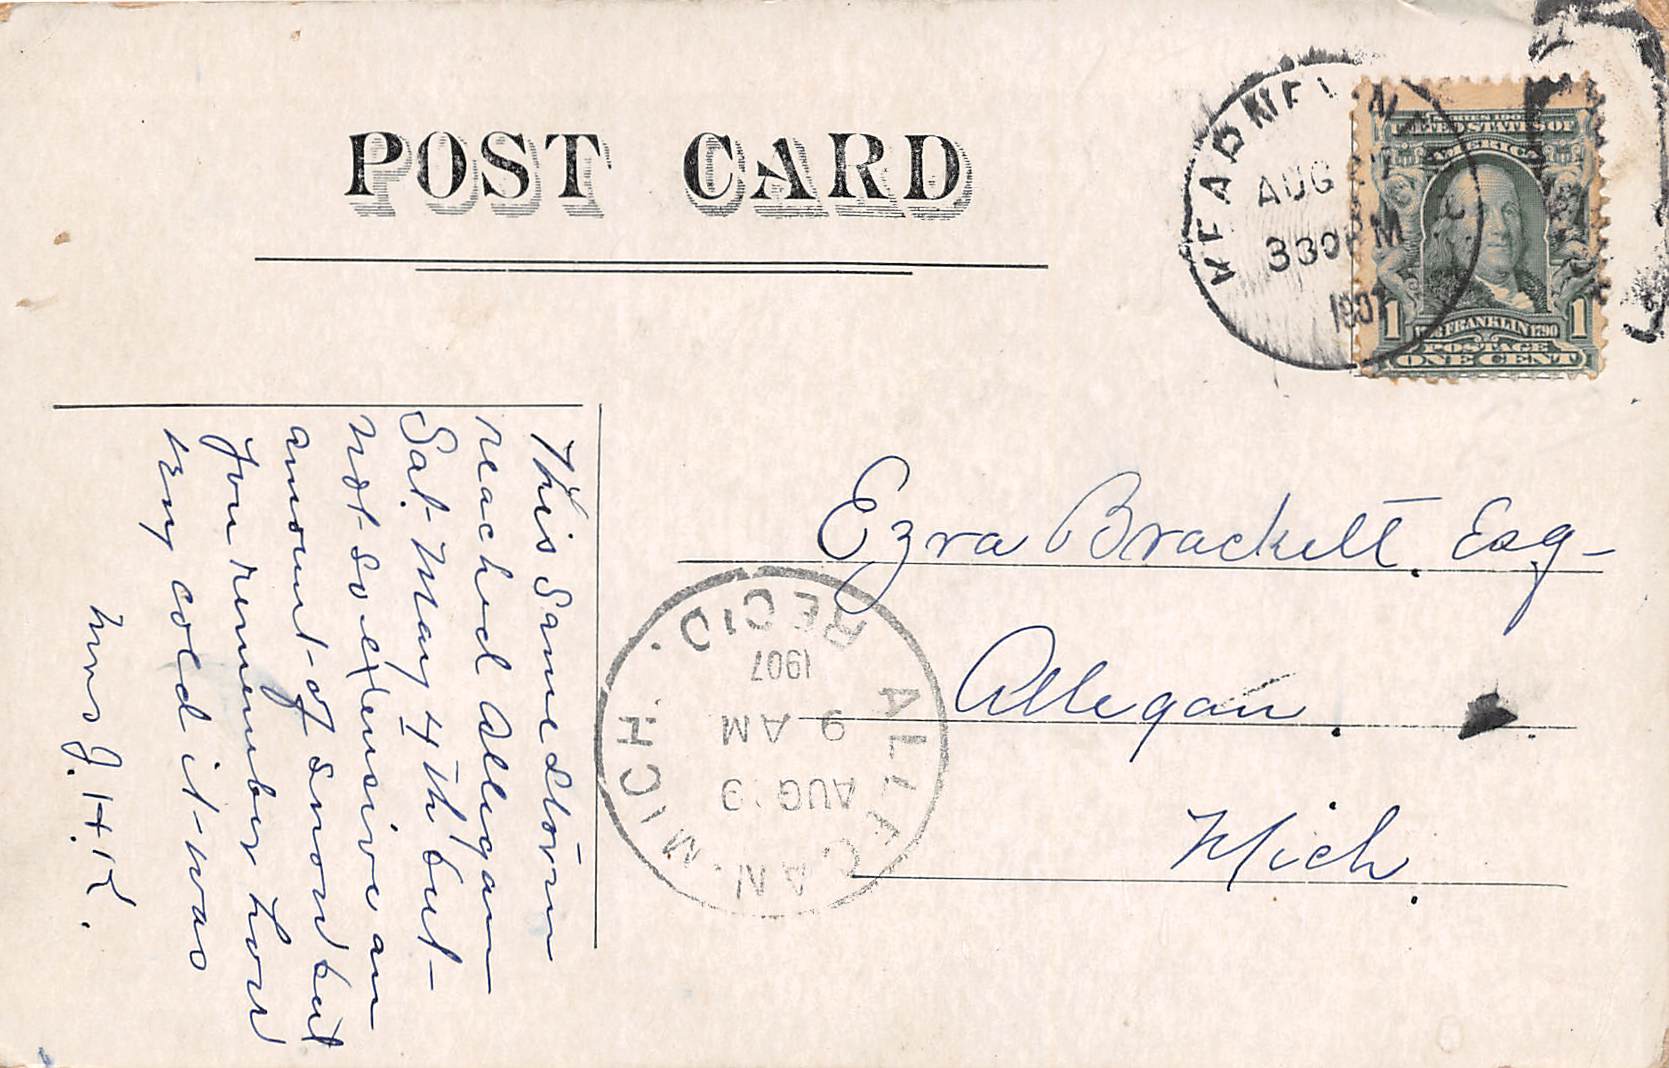 POST CARD
AUG
330 PM
1907
SERIES 1902
UNITED STATES OF
AMERICA
1 FRANKLIN 1790 1
POSTAGE
ONE CENT
This same storm
reached Allegan
Sat. May 4th but
not so extensive an
amount of snow but
you remember how
very cold it was
Mrs J. H. K.
Ezra Brackett. Esq-
Allegan.
Mich.
ALLEGAN. MICH.
AUG 9
9 AM
1907
REC'D.